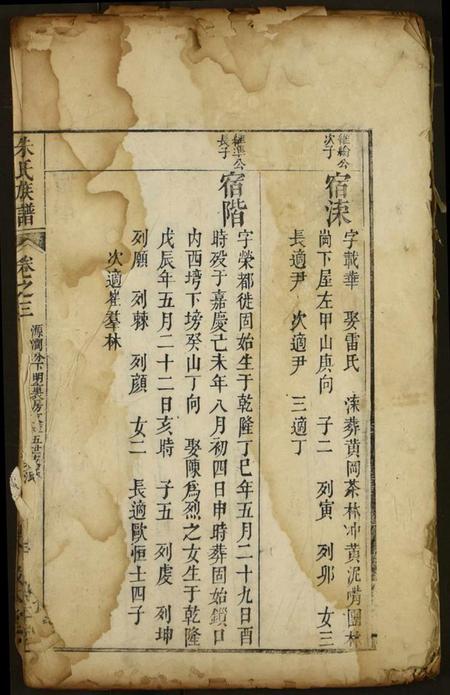 維綸公
次子
宿涑
字載華 娶雷氏 涑葬黃岡茶林冲黃泥嘴園林
崗下屋左甲山庚向 子二 列寅 列夘 女三
長適尹 次適尹 三適丁
維準公
長子
宿階
字榮都徙固始生于乾隆丁巳年五月二十九日酉
時殁于嘉慶己未年八月初四日申時葬固始鎖口
内西塆下塝癸山丁向 娶陳爲烈之女生于乾隆
戊辰年五月二十二日亥時 子五 列虔 列坤
列願 列棘 列顔 女二 長適歐恒士四子
次適崔羣林
朱氏族譜
卷之三